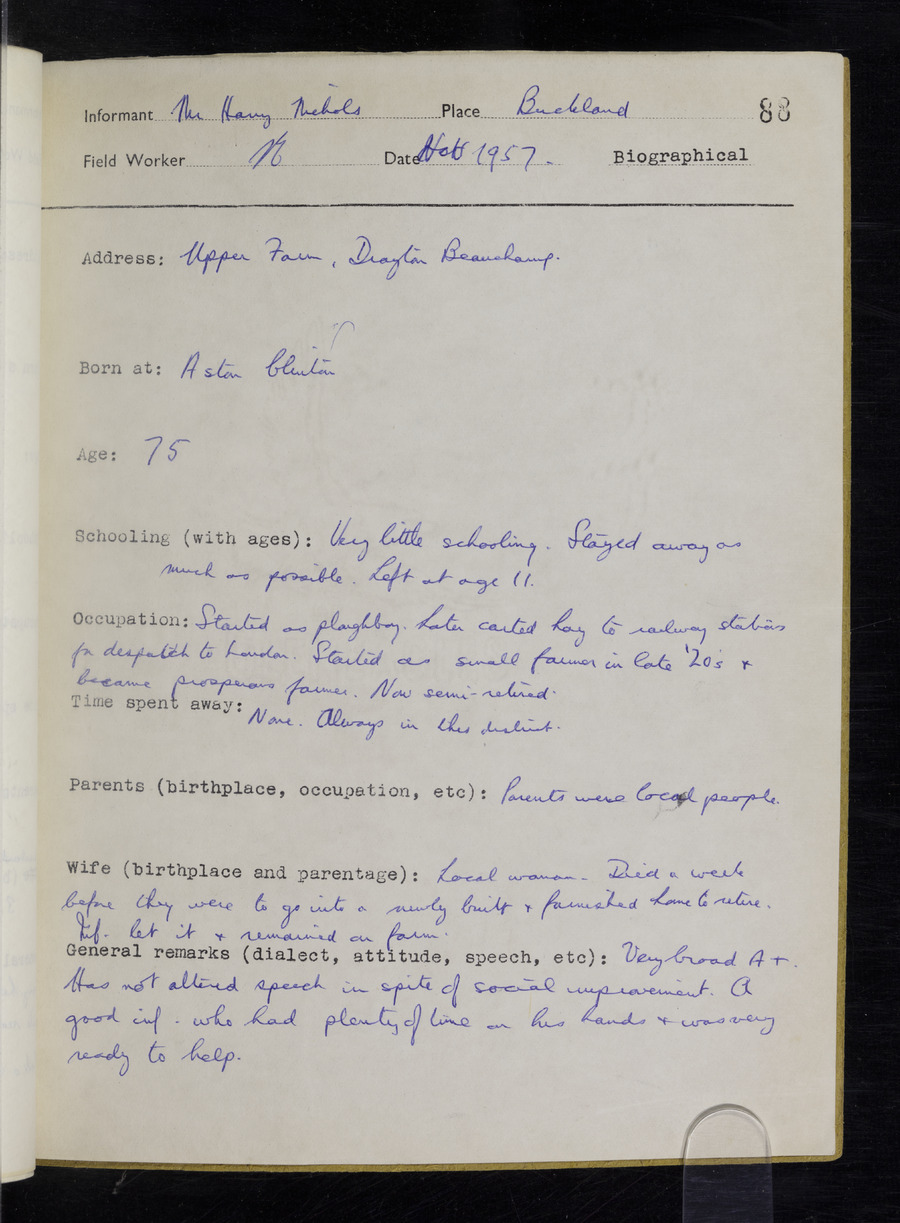 Informant Mr Harry Nichols Place Buckland 88
Field Worker Date Nov 1957. Biographical
Address: Upper Farm, Drayton Beauchamp.
Born at: Aston Clinton
Age: 75
Schooling (with ages): Very little schooling. Stayed away as
much as possible. Left at age 11.
Occupation: Started as ploughboy. Later carted hay to railway stations
for despatch to London. Started as small farmer in late '20s +
became prosperous farmer. Now semi-retired.
Time spent away: None. Always in this district.
Parents (birthplace, occupation, etc): Parents were local people.
Wife (birthplace and parentage): Local woman. Died a week
before they were to go into a newly built + furnished home to retire.
Inf. let it + remained on farm.
General remarks (dialect, attitude, speech, etc): Very broad A+.
Has not altered speech in spite of social improvement. A
good inf. who had plenty of time on his hands + was very
ready to help.